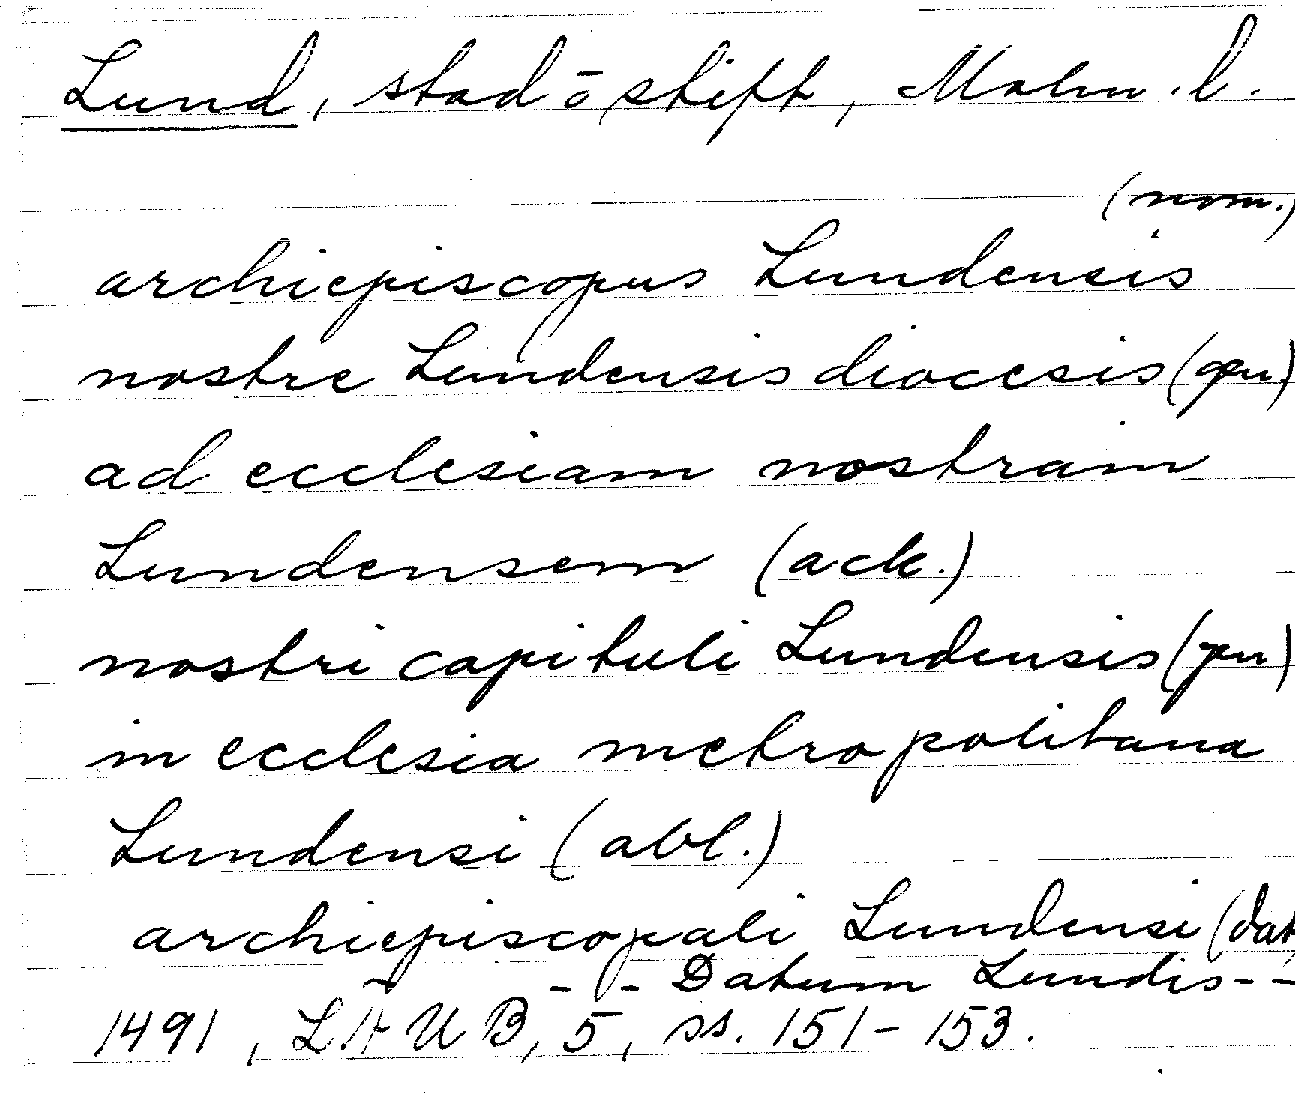 Lund, stad o stift, Malm. l.
(nom.)
archiepiscopus Lundensis
nostre Lundensis diocesis (gen)
ad ecclesiam nostram
Lundensem (ack.)
nostri capituli Lundensis (gen)
in ecclesia metropolitana
Lundensi (abl.)
archiepiscopali Lundensi (dat
- - - Datum Lundis - -
1491, LÄUB, 5, ss. 151-153.